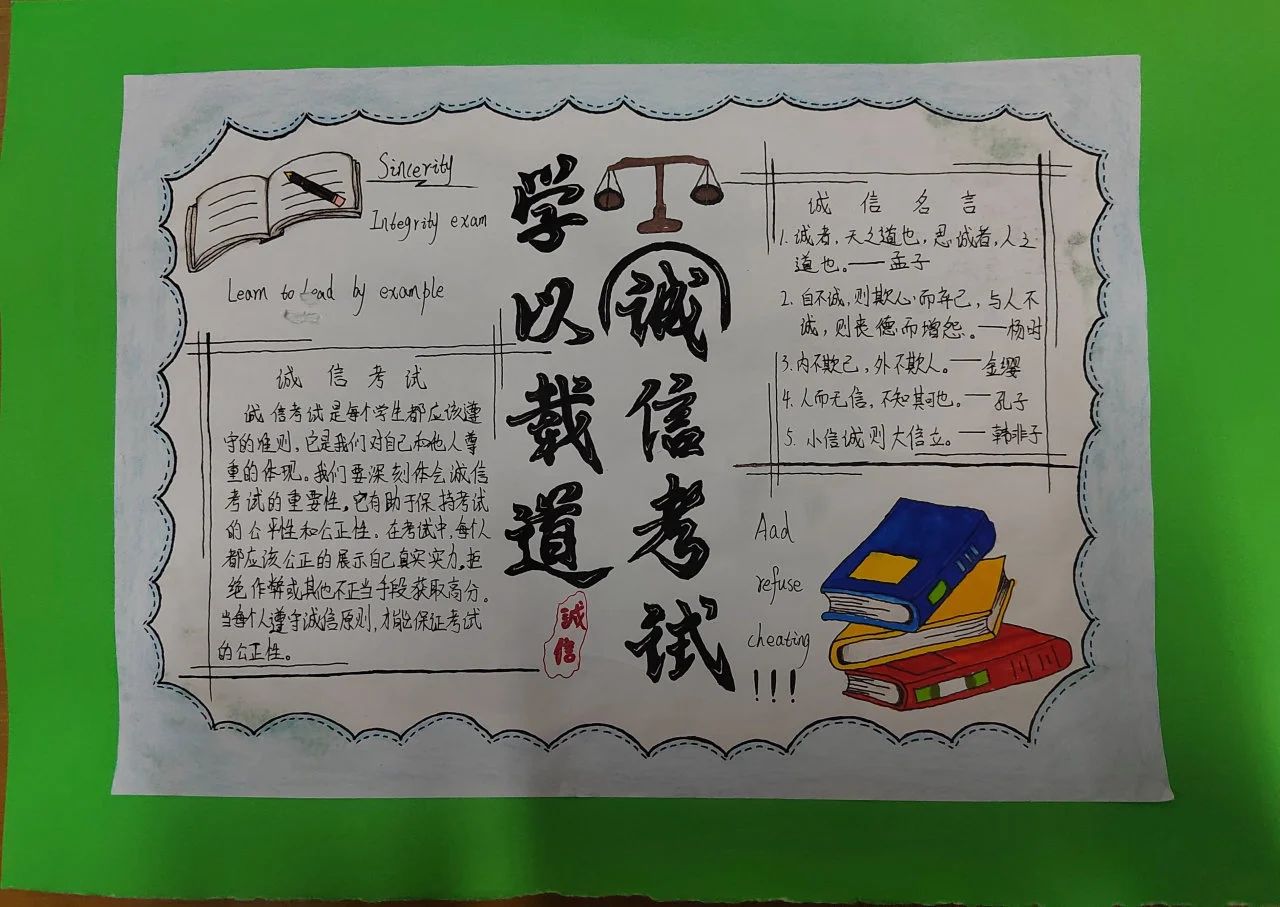 Sincerity
Integrity exam
Learn to Lead by example
诚信考试
诚信考试是每个学生都应该遵
守的准则,它是我们对自己和他人尊
重的体现。我们要深刻体会诚信
考试的重要性,它有助于保持考试
的公平性和公正性。在考试中,每个人
都应该公正的展示自己真实实力,拒
绝作弊或其他不正当手段获取高分。
当每个人遵守诚信原则,才能保证考试
的公正性。
学以载道
誠信
诚信考试
诚信名言
1. 诚者,天之道也,思诚者,人之
道也。——孟子
2. 自不诚,则欺心而弃己,与人不
诚,则丧德而增怨。——杨时
3. 内不欺己,外不欺人。——金缨
4. 人而无信,不知其可也。——孔子
5. 小信诚则大信立。——韩非子
Aad
refuse
cheating
!!!